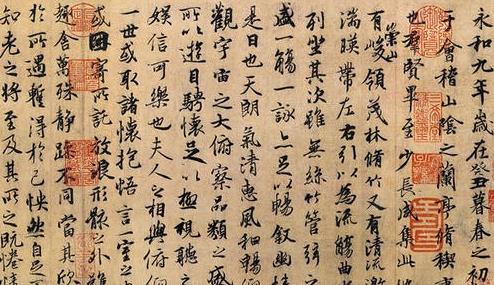 永和九年歲在癸丑暮春之初
于會稽山陰之蘭亭脩禊事
也羣賢畢至少長咸集此地
有崇山峻領茂林脩竹又有清流激
湍暎帶左右引以為流觴曲水
列坐其次雖無絲竹管弦之
盛一觴一詠亦足以暢敘幽情
是日也天朗氣清惠風和暢仰
觀宇宙之大俯察品類之盛
所以遊目騁懷足以極視聽之
娛信可樂也夫人之相與俯仰
一世或取諸懷抱悟言一室之
或因寄所託放浪形骸之外雖
趣舍萬殊靜躁不同當其欣
於所遇蹔得於己怏然自足
知老之將至及其所之既惓情